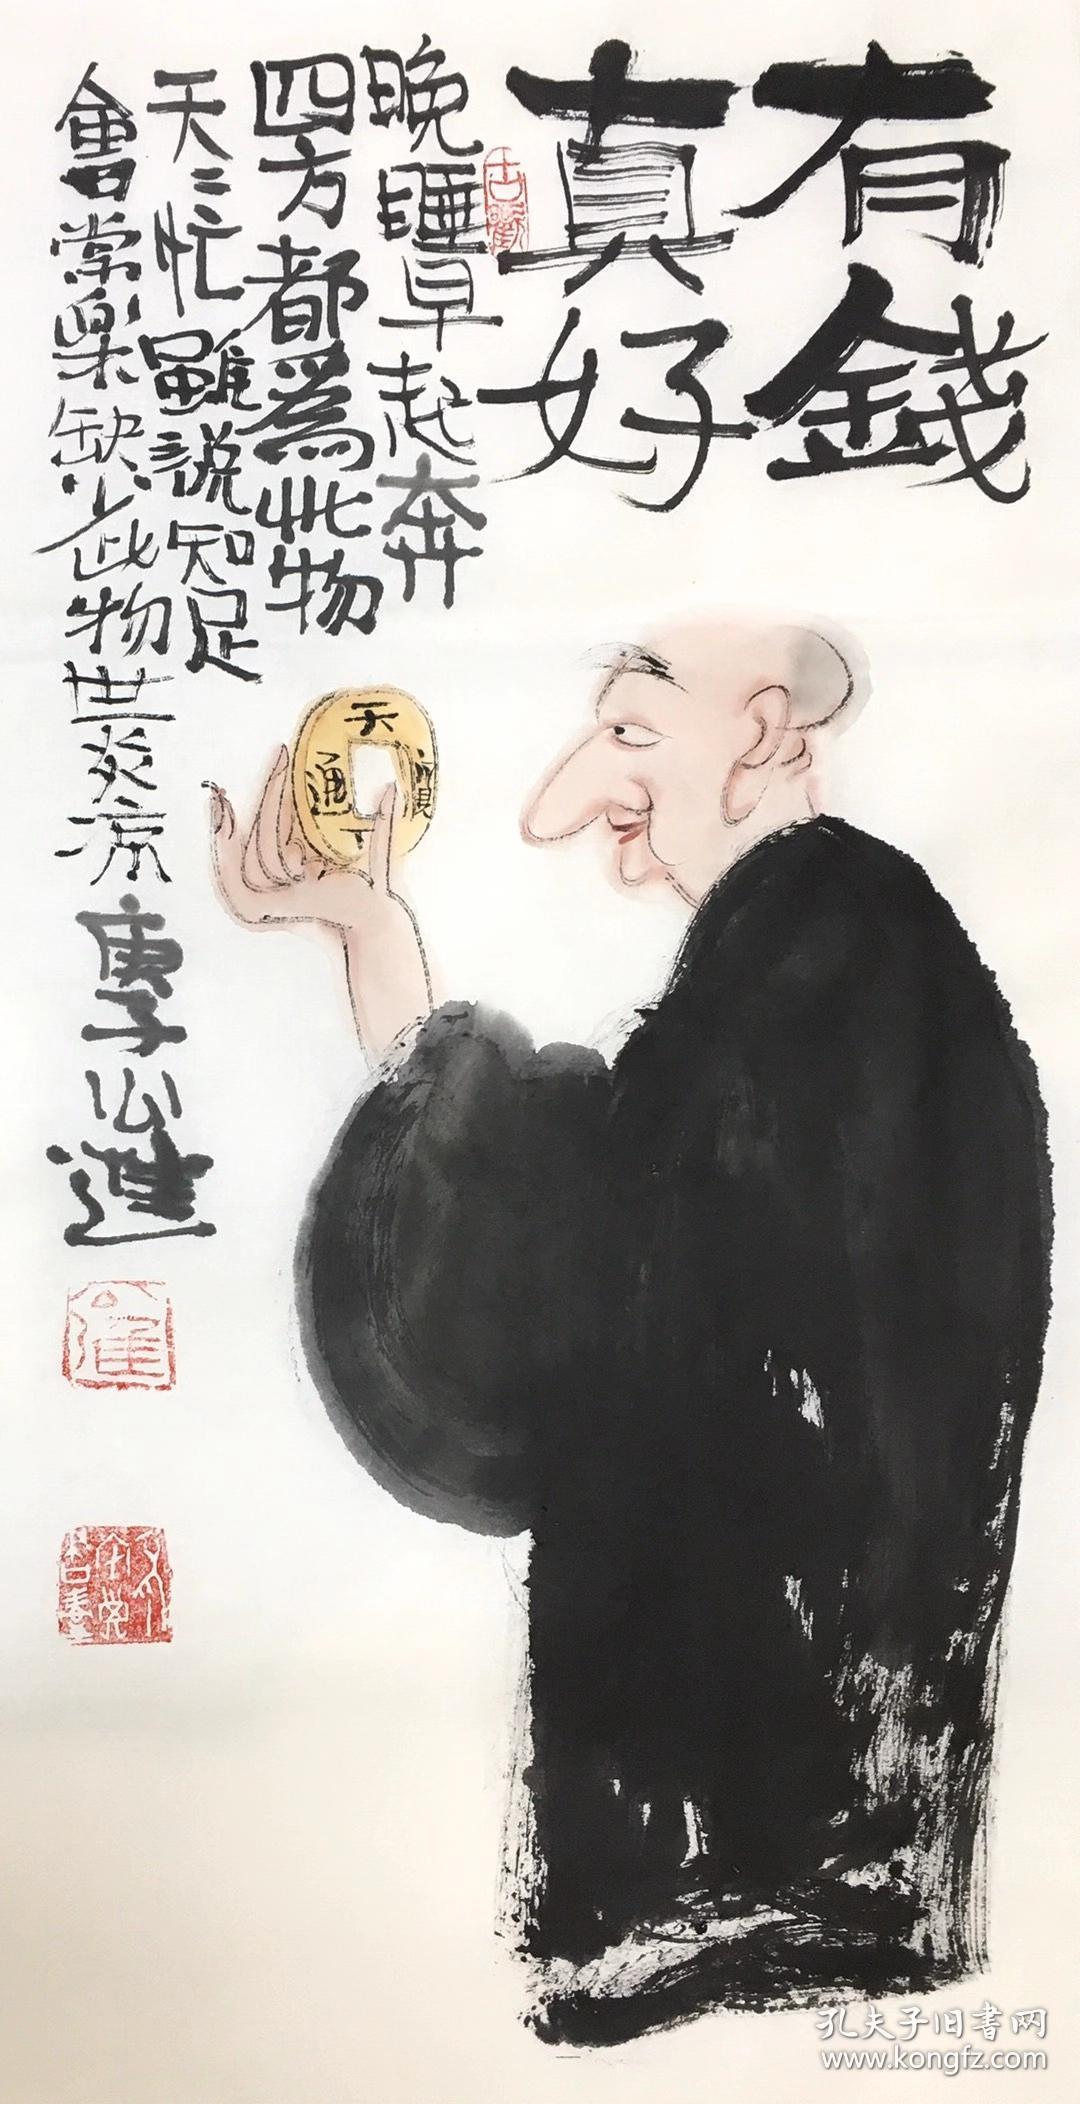 有錢
真好
晚睡早起奔
四方都為此物
天天忙雖說知足
會常樂缺少此物世炎涼庚子公進
天
下
通
孔夫子旧書网
www.kongfz.com